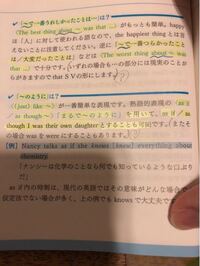 「〜で一番うれしかったことは…」は?
(The best thing about 〜 was that …) がもっとも簡単。happy
は「人」に対して使われる語なので、the happiest thing とは言
えないことに注意してください。逆に「〜で一番つらかったこと
は / 大変だったことは」などは (The worst thing about 〜 was
that …) で十分です。(いずれの場合も…の部分には現実のことが
らがきますので that S V の形にします。)
「〜のように」は?
(just) like 〜 が一番簡単な表現です。熟語的表現の (as if
/ as though 〜)「まるで〜のように」を用いて、as if /
as though I was their own daughter とすることも可能です (またその
場合 was を were にすることもあります)。
[例] Nancy talks as if she knows [knew] everything about
chemistry.
「ナンシーは化学のことなら何でも知っているような口ぶりだ」
as if 内の時制は、現代の英語ではその意味がどんな場合で
仮定法でない場合が多く、上の例でも knows で大丈夫です